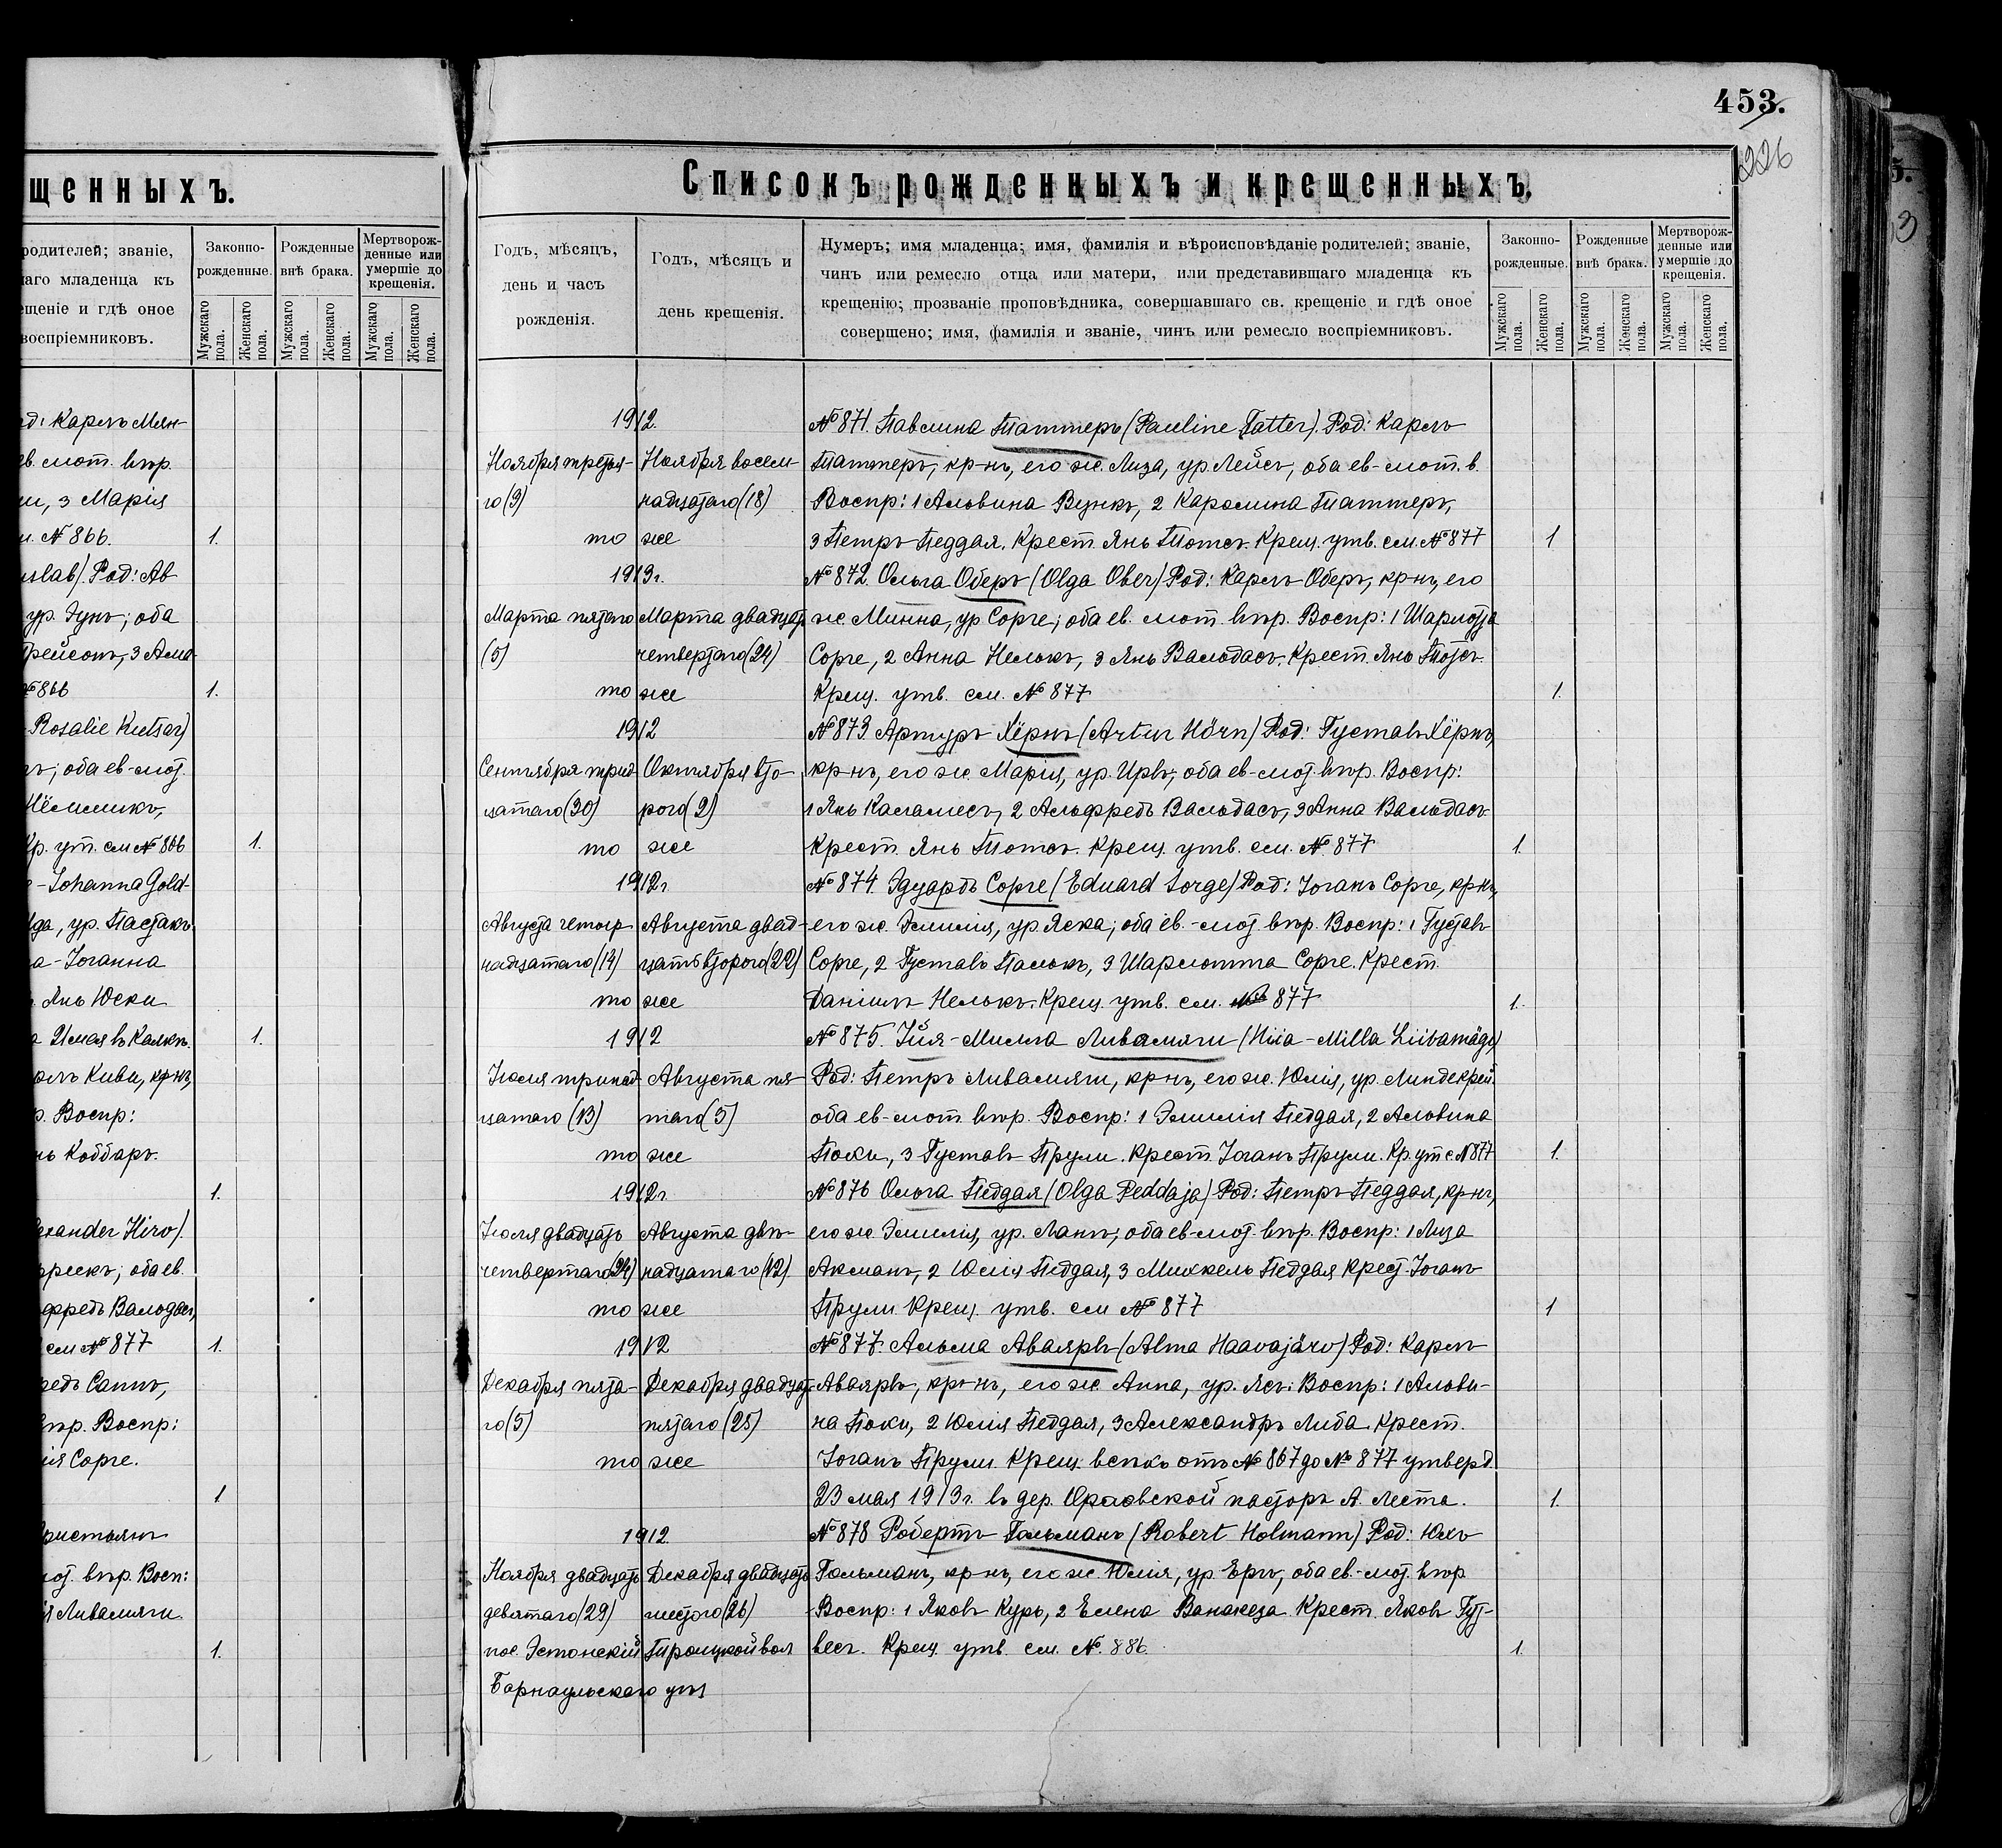 щенныхъ.
родителей; званіе,
младенца къ
щеніе и гдѣ оное
воспріемниковъ.
Законно-
рожденные.
Рожденные
внѣ брака.
Мертворож-
денные или
умершіе до
крещенія.
Мужскаго пола.
Женскаго пола.
Мужскаго пола.
Женскаго пола.
Мужскаго пола.
Женскаго пола.
Карлъ Мян-
ев. лют. вѣр.
3 Марія
№ 866. 1.
Род: Ав
ур. Зунъ; оба
3 Ама-
№ 866 1.
Rosalie Kutsar)
оба ев-лют.
Кр. ут. см № 866 1.
Johanna Gold-
ур. Пастакъ
а-Іоганна
Янъ Юски
21 мая въ 1.
Киви, крнъ,
Воспр:
Коббаръ.
1.
exander Hiro).
оба ев.
Валодасъ,
см № 877 1.
Саппъ,
вѣр. Воспр:
Сорге.
1
вѣр. Восп:
Ливамяги.
1.
453.
226
Списокъ рожденныхъ и крещенныхъ.
Годъ, мѣсяцъ,
день и часъ
рожденія.
Годъ, мѣсяцъ и
день крещенія.
Нумеръ; имя младенца; имя, фамилія и вѣроисповѣданіе родителей; званіе,
чинъ или ремесло отца или матери, или представившаго младенца къ
крещенію; прозваніе проповѣдника, совершавшаго св. крещеніе и гдѣ оное
совершено; имя, фамилія и званіе, чинъ или ремесло воспріемниковъ.
Законно-
рожденные.
Рожденные
внѣ брака.
Мертворож-
денные или
умершіе до
крещенія.
Мужскаго пола.
Женскаго пола.
Мужскаго пола.
Женскаго пола.
Мужскаго пола.
Женскаго пола.
1912. №871. Павлина Таттеръ (Pauline Tatter). Род: Карлъ
Ноября третья- Ноября восем- Таттеръ, кр-нъ, его ж. Лиза, ур. Лейсъ, оба ев-лют. в.
го (3) надцатаго (18) Воспр: 1 Альвина Вункъ, 2 Каролина Таттеръ,
то же 3 Петръ Педдая. Крест. Янъ Тотсъ. Крещ. утв. см. №877 1
1913г. №872. Ольга Оберъ (Olga Ober) Род: Карлъ Оберъ, кр-нъ, его
Марта пятаго Марта двадцать ж. Минна, ур Сорге; оба ев. лют. вѣр. Воспр: 1 Шарлотта
(5) четвертаго (24) Сорге, 2 Анна Нелькъ, 3 Янъ Вальдасъ. Крест. Янъ Тотсъ.
то же Крещ. утв. см. № 877 1.
1912 №873. Артуръ Хёрнъ (Artur Hörn) Род: Густавъ Хёрнъ,
Сентября трид- Октября вто- кр-нъ, его ж. Марія, ур. Ирвъ; оба ев-лют. вѣр. Воспр:
цатаго (30) рого (2) 1 Янъ Каламесъ, 2 Альфредъ Вальдасъ, 3 Анна Вальдасъ
то же Крест. Янъ Тотсъ. Крещ. утв. см. № 877 1.
1912г №874. Эдуардъ Сорге (Eduard Sorge) Род: Іоганъ Сорге, крнъ,
Августа четыр- Августа двад- его ж. Эмилія, ур. Яска; оба ев.-лют. вѣр. Воспр: 1 Густавъ
надцатаго (14) цать второго (22) Сорге, 2 Густавъ Палькъ, 3 Шарлотта Сорге. Крест.
то же Даніилъ Нелькъ. Крещ. утв. см. № 877 1.
1912 №875. Ійя-Милла Ливамяги (Hiia-Milla Liivamägi)
Іюля тринад- Августа пя- Род: Петръ Ливамяги, кр-нъ, его ж. Юлія, ур. Линдекрей.
цатаго (13) таго (5) оба ев-лют. вѣр. Воспр: 1 Эмилія Педдая, 2 Альвина
то же Поки, 3 Густавъ Прули. Крест. Іоганъ Прули. Кр. ут с. №877 1.
1912г №876 Ольга Педдая (Olga Peddaja) Род: Петръ Педдая, кр-нъ,
Іюля двадцать Августа двѣ- его ж Эмилія, ур. Лапъ; оба ев-лют. вѣр. Воспр: 1 Лиза
четвертаго (24) надцатаго (12) Акманъ, 2 Юлія Педдая, 3 Михкель Педдая Крест. Іоганъ
то же Прули Крещ. утв. см № 877 1
1912 №877. Альма Аваярвъ (Alma Haavajärv) Род: Карлъ
Декабря пята- Декабря двадцать Аваярвъ, кр-нъ, его ж. Анна, ур. Ясъ: Воспр: 1 Альви-
го (5) пятаго (25) на Поки, 2 Юлія Педдая, 3 Александръ Либа Крест.
то же Іоганъ Прули. Крещ. всѣхъ отъ № 867 до № 877 утверд.
23 мая 1913г. въ дер. Орловской пасторъ А. Леста. 1.
1912. №878 Робертъ Гольманъ (Robert Holmann) Род: Юхъ
Ноября двадцать Декабря двадцать Гольманъ, кр-нъ, его ж. Юлія, ур. Еръ, оба ев.-лют. вѣр
девятаго (29) шестого (26) Воспр: 1 Яковъ Куръ, 2 Елена Ванакеза. Крест. Яковъ Гут-
пос. Эстонскій Троицкой вол весъ. Крещ. утв. см. № 886. 1.
Барнаульскаго уѣз